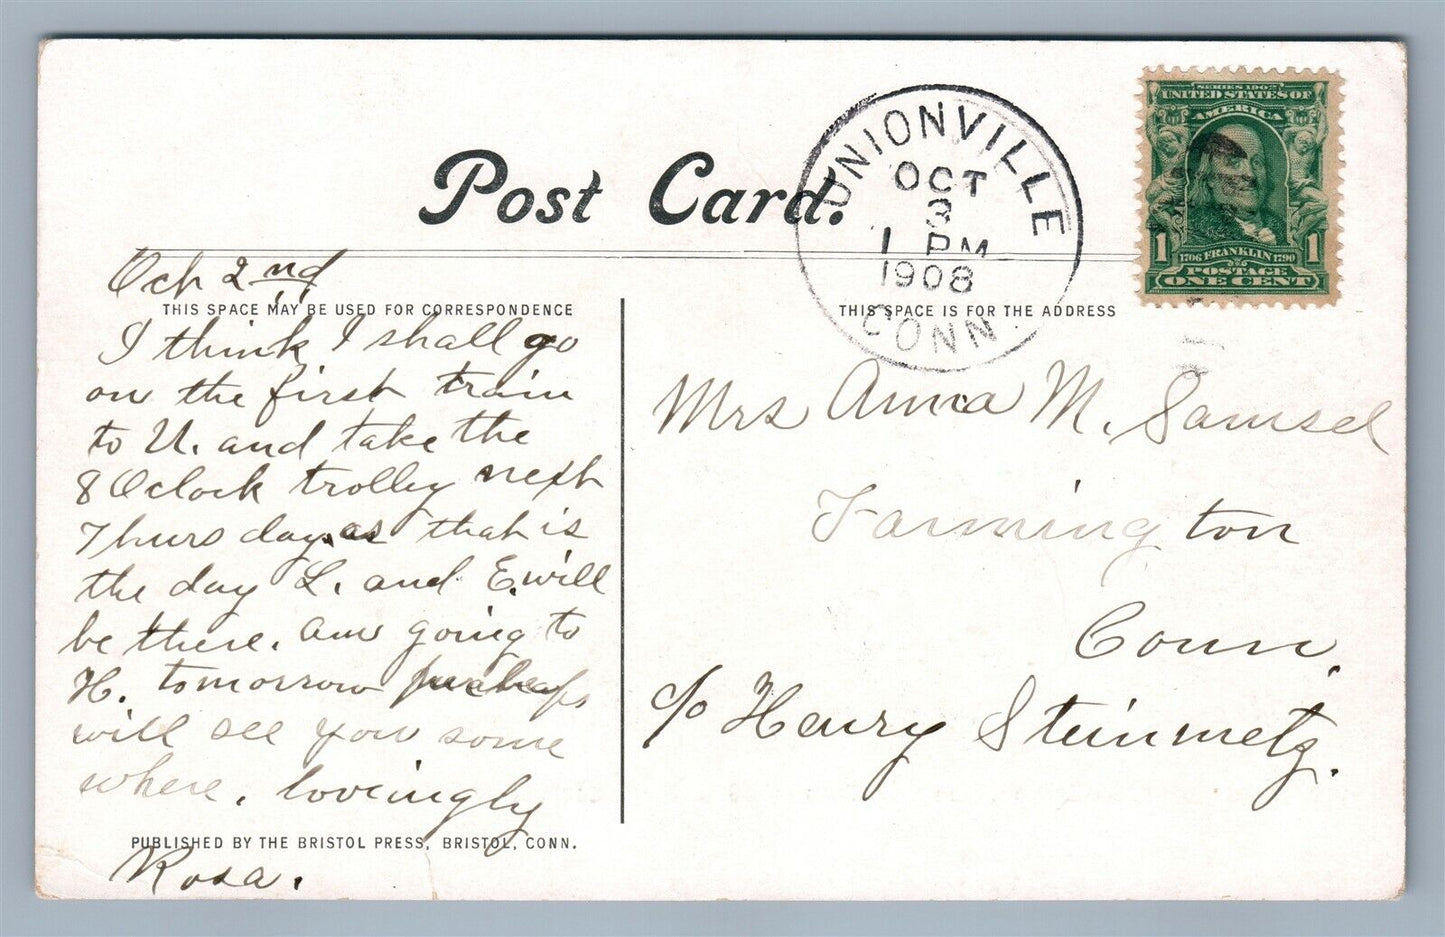 Post Card.
UNIONVILLE
OCT
3
1 PM
1908
CONN
SERIES 1902
UNITED STATES OF
AMERICA
1706 FRANKLIN 1790
1 1
POSTAGE
ONE CENT
THIS SPACE MAY BE USED FOR CORRESPONDENCE
THIS SPACE IS FOR THE ADDRESS
Oct 2nd
I think I shall go
on the first train
to U. and take the
8 Oclock trolley next
Thursday. as that is
the day L. and E. will
be there. am going to
H. tomorrow perhaps
will see you some
where. lovingly
Rosa.
Mrs Anna M. Samsel
Farmington
Conn.
c/o Henry Steinmetz.
PUBLISHED BY THE BRISTOL PRESS, BRISTOL, CONN.